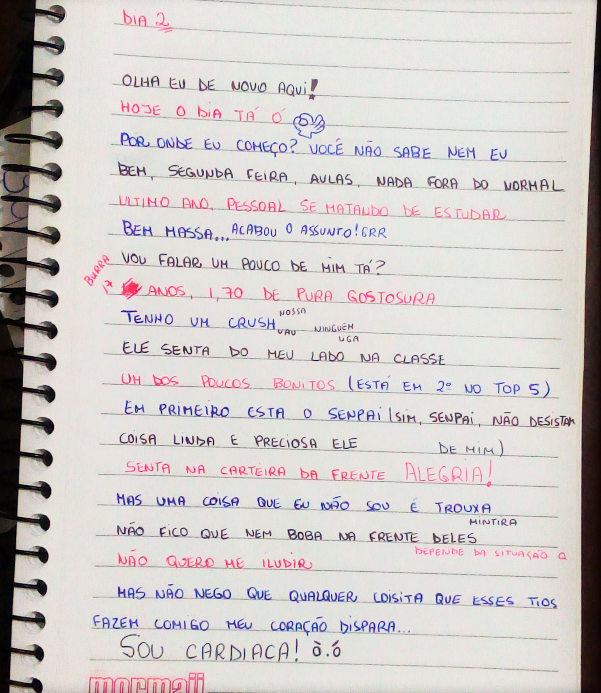 DIA 2
OLHA EU DE NOVO AQUI!
HOJE O DIA TÁ Ó
POR ONDE EU COMEÇO? VOCÊ NÃO SABE NEM EU
BEM, SEGUNDA FEIRA, AULAS, NADA FORA DO NORMAL
ULTIMO ANO, PESSOAL SE MATANDO DE ESTUDAR
BEM MASSA... ACABOU O ASSUNTO! GRR
VOU FALAR UM POUCO DE MIM TÁ?
BURRA
17 ANOS, 1,70 DE PURA GOSTOSURA
TENHO UM CRUSH NOSSA
UAU NINGUÉM
LIGA
ELE SENTA DO MEU LADO NA CLASSE
UM DOS POUCOS BONITOS (ESTÁ EM 2º NO TOP 5)
EM PRIMEIRO ESTA O SENPAI (SIM, SENPAI, NÃO DESISTAM
COISA LINDA E PRECIOSA ELE DE MIM)
SENTA NA CARTEIRA DA FRENTE ALEGRIA!
MAS UMA COISA QUE EU NÃO SOU É TROUXA
MINTIRA
NÃO FICO QUE NEM BOBA NA FRENTE DELES
DEPENDE DA SITUAÇÃO
NÃO QUERO ME ILUDIR
MAS NÃO NEGO QUE QUALQUER COISITA QUE ESSES TIOS
FAZEM COMIGO MEU CORAÇÃO DISPARA...
SOU CARDIACA! Ò.Ó
mormaii